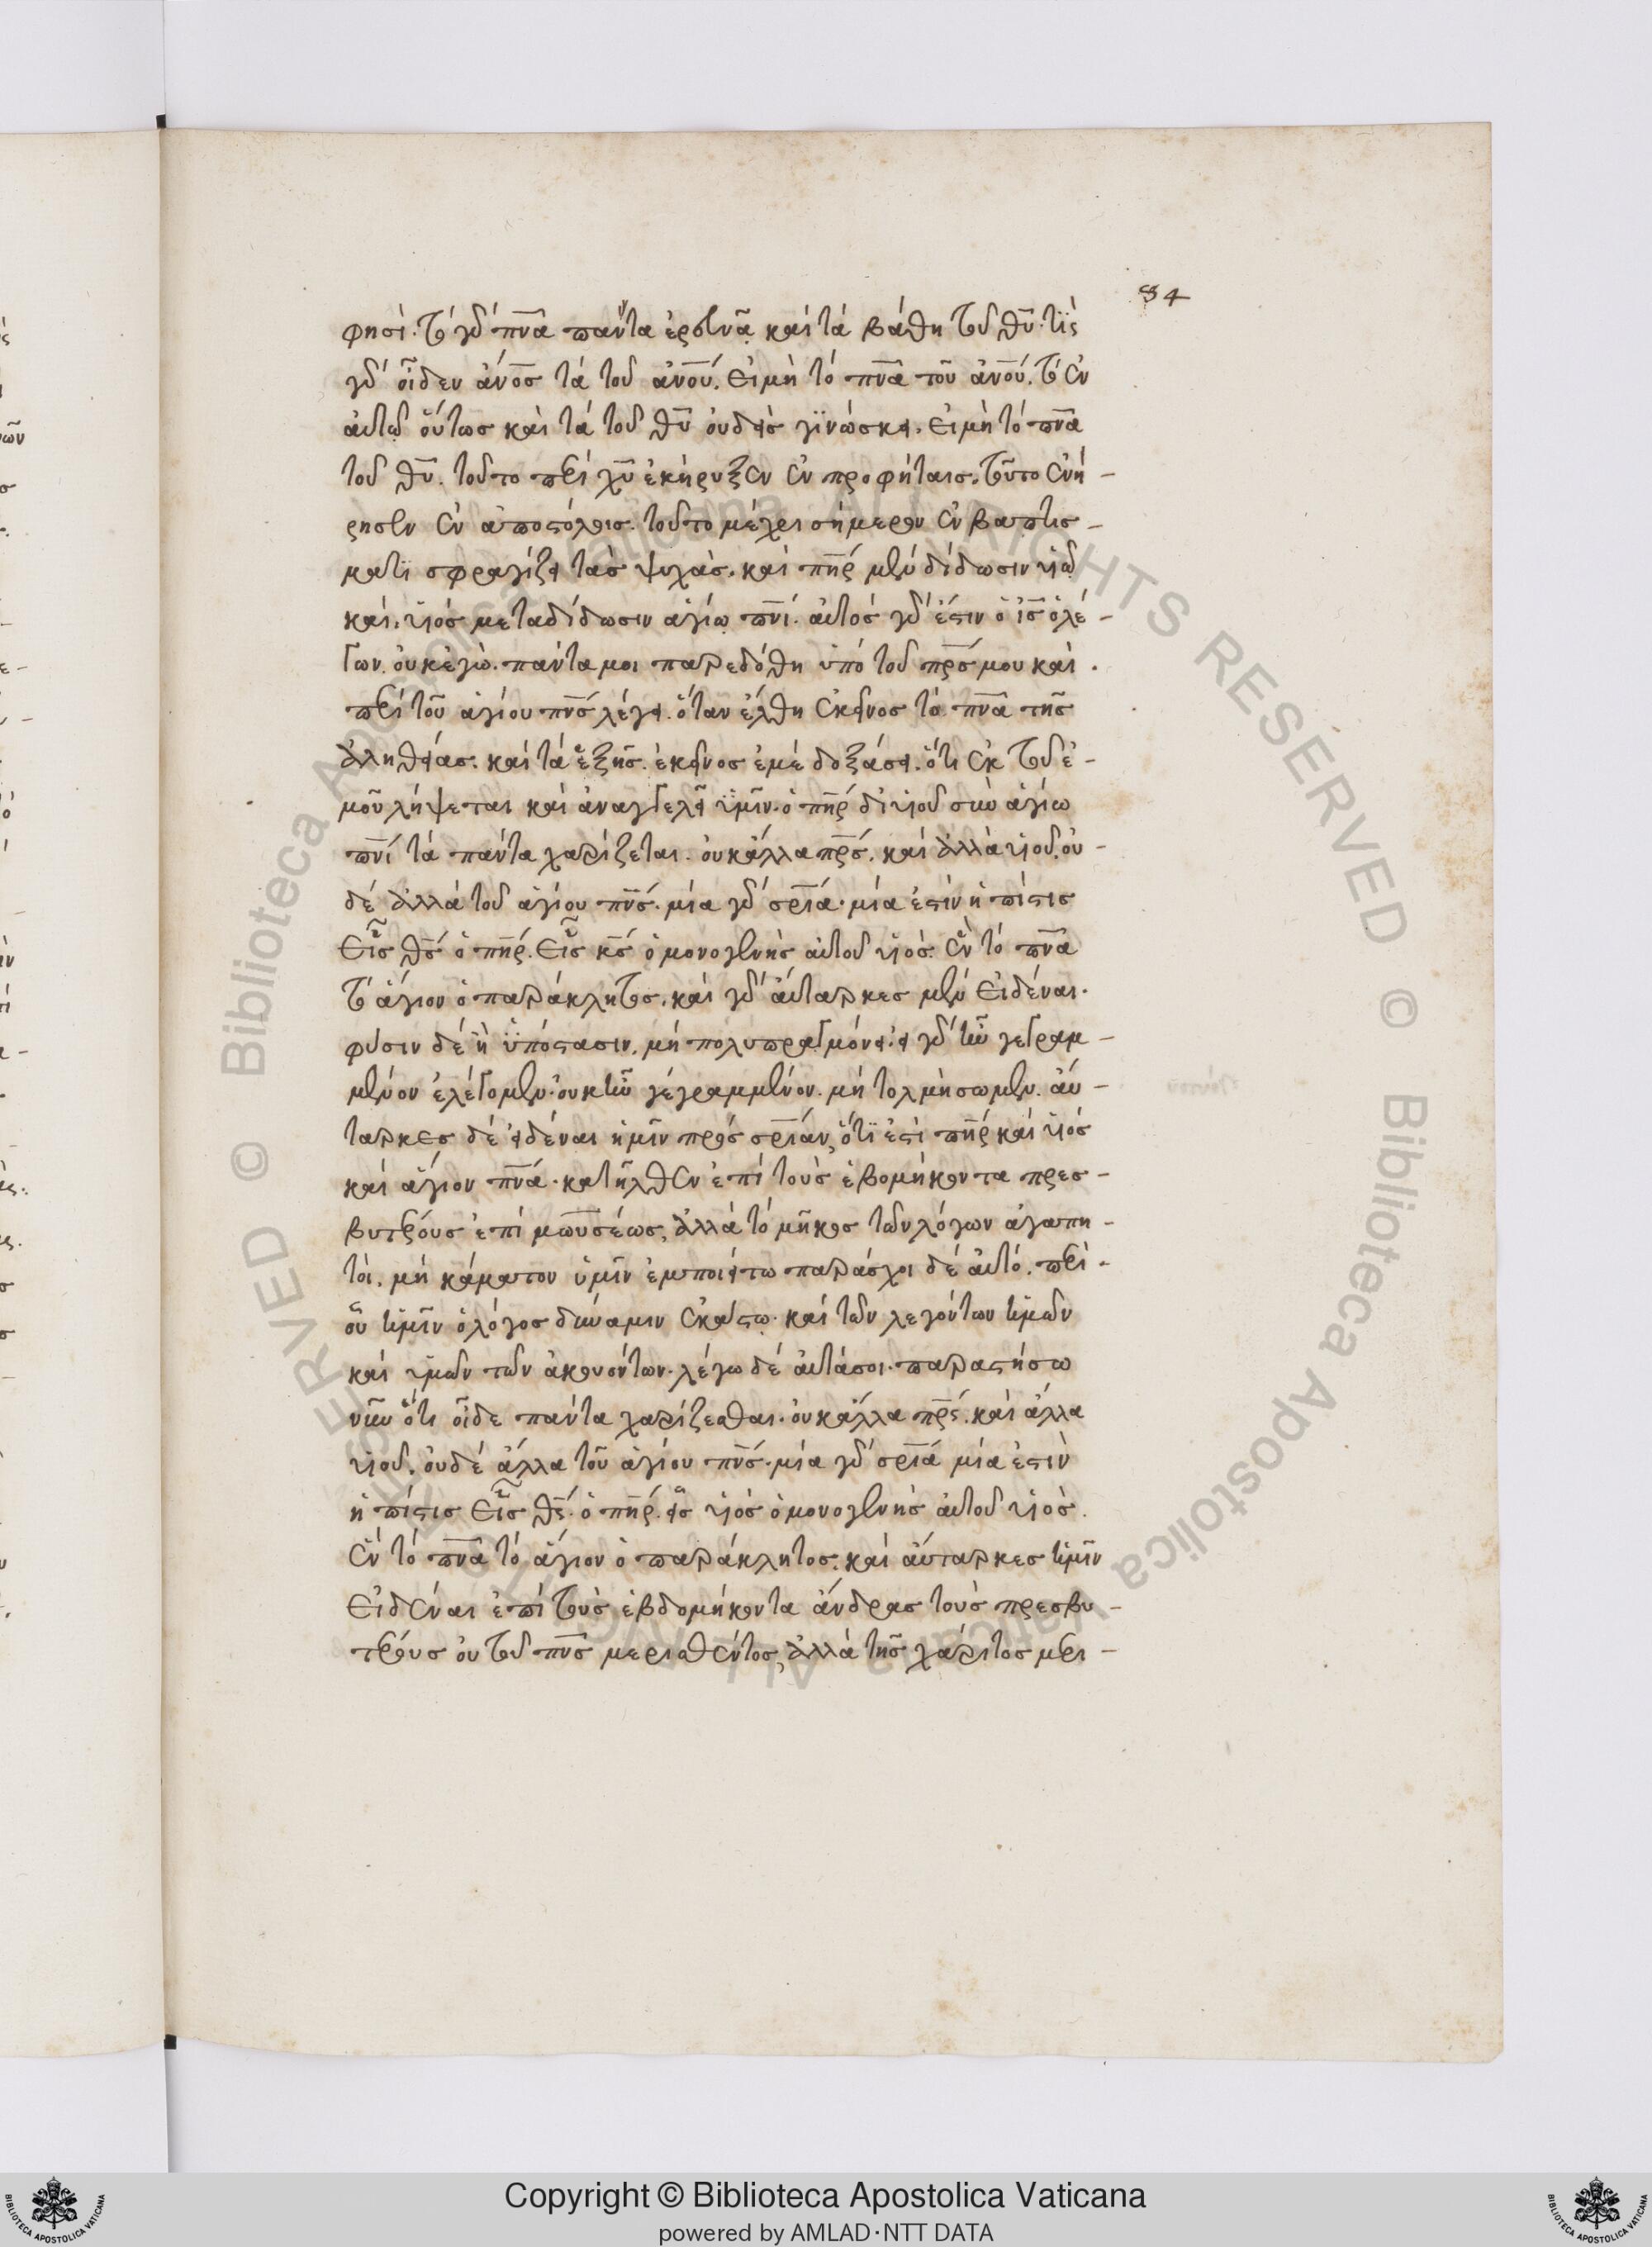 84
φησί. τό γὰρ πνᾶ πάντα ἐρευνᾷ καί τά βάθη τοῦ θῦ. τίς
γὰρ οἶδεν ἀνος τά τοῦ ἀνου. εἰμὴ τό πνᾶ τοῦ ἀνου. τό ἐν
αὐτῷ οὕτως καὶ τά τοῦ θῦ οὐδεὶς γϊνώσκει. εἰμὴ τό πνᾶ
τοῦ θῦ. τοῦτο περί χῦ ἐκήρυξεν ἐν προφήταισ. τοῦτο ἐνή-
ρησεν ἐν ἀποστόλοισ. τοῦτο μέχρι σήμερον ἐν βαπτισ-
ματϊ σφραγίζει τὰσ ψυχάσ. καί πηρ μέν δίδωσιν υἱῷ
καί υἱόσ μεταδίδωσιν ἁγίῳ πνι. αὐτόσ γὰρ ἐστιν ὁ ισ ὁ λέ-
γων. οὐκ ἐγὼ. πάντα μοι παρεδόθη ὑπό τοῦ πρσ μου καί.
περί τοῦ ἁγίου πνσ λέγει. ὅταν ἔλθη ἐκεῖνος τό πνᾶ τῆσ
ἀληθείασ. καί τά ἑξῆσ. ἐκεῖνοσ ἐμέ δοξάσει. ὅτι ἐκ τοῦ ἐ-
μοῦ λήψεται καί ἀναγγελεῖ ὑμῖν. ὁ πηρ δι υἱοῦ σὺν ἁγίω
πνι τά πάντα χαρίζεται. οὐκ ἄλλα πρσ. καί ἀλλὰ υἱοῦ. οὐ-
δέ ἀλλά τοῦ ἁγίου πνσ. μία γὰρ σρια. μία ἐστίν ἡ πίστισ
εἷσ θσ ὁ πηρ. εἷσ κσ ὁ μονογενὴσ αὐτοῦ υἱόσ. ἓν τό πνᾶ
τό ἅγιον ὁ παράκλητοσ. καί γὰρ αὔταρκεσ μέν εἰδέναι.
φύσιν δέ ἢ ὑπόστασιν. μή πολυπραγμόνει. εἰ γὰρ ἦν γεγραμ-
μένον ἐλέγομεν. οὐκ ἦν γέγραμμένον. μή τολμήσωμεν. αὔ-
ταρκεσ δέ εἰδέναι ἡμῖν πρόσ σριαν, ὅτϊ ἐστί πηρ καί υἱόσ
καί ἅγιον πνα. κατῆλθεν ἐπί τοὺσ ἑβομήκοντα πρεσ-
βυτέρουσ ἐπί μωυσέωσ, ἀλλά τό μῆκοσ τῶν λόγων ἀγαπη-
τοί. μή κάματον ὑμῖν ἐμποιείτω παράσχοι δέ αὐτό. περί.
οὗ ἡμῖν ὁ λόγοσ δύναμιν ἑκάστῳ. καί τῶν λεγόντων ἡμῶν
καί ὑμῶν τῶν ἀκουόντων. λέγω δέ αὐτάσοι. παραστήσω
νῦν ὅτι οἶδε πάντα χαρίζεσθαι. οὐκ ἄλλα πρς. καί ἄλλα
υἱοῦ. οὐδέ ἄλλα τοῦ ἁγίου πνσ. μία γὰρ σρια μία ἐστιν
ἡ πίστισ εἷσ θς. ὁ πηρ. εἷσ υἱόσ ὁ μονογενήσ αὐτοῦ υἱόσ.
ἓν τό πνᾶ τό ἅγιον ὁ παράκλητοσ. καί αὔταρκεσ ἡμῖν
εἰδέναι ἐπί τοὺσ ἑβδομήκοντα ἄνδρασ τοὺσ πρεσβυ-
τέρουσ οὐ τοῦ πνσ μερισθέντοσ, ἀλλά τῆσ χάριτοσ μερι-